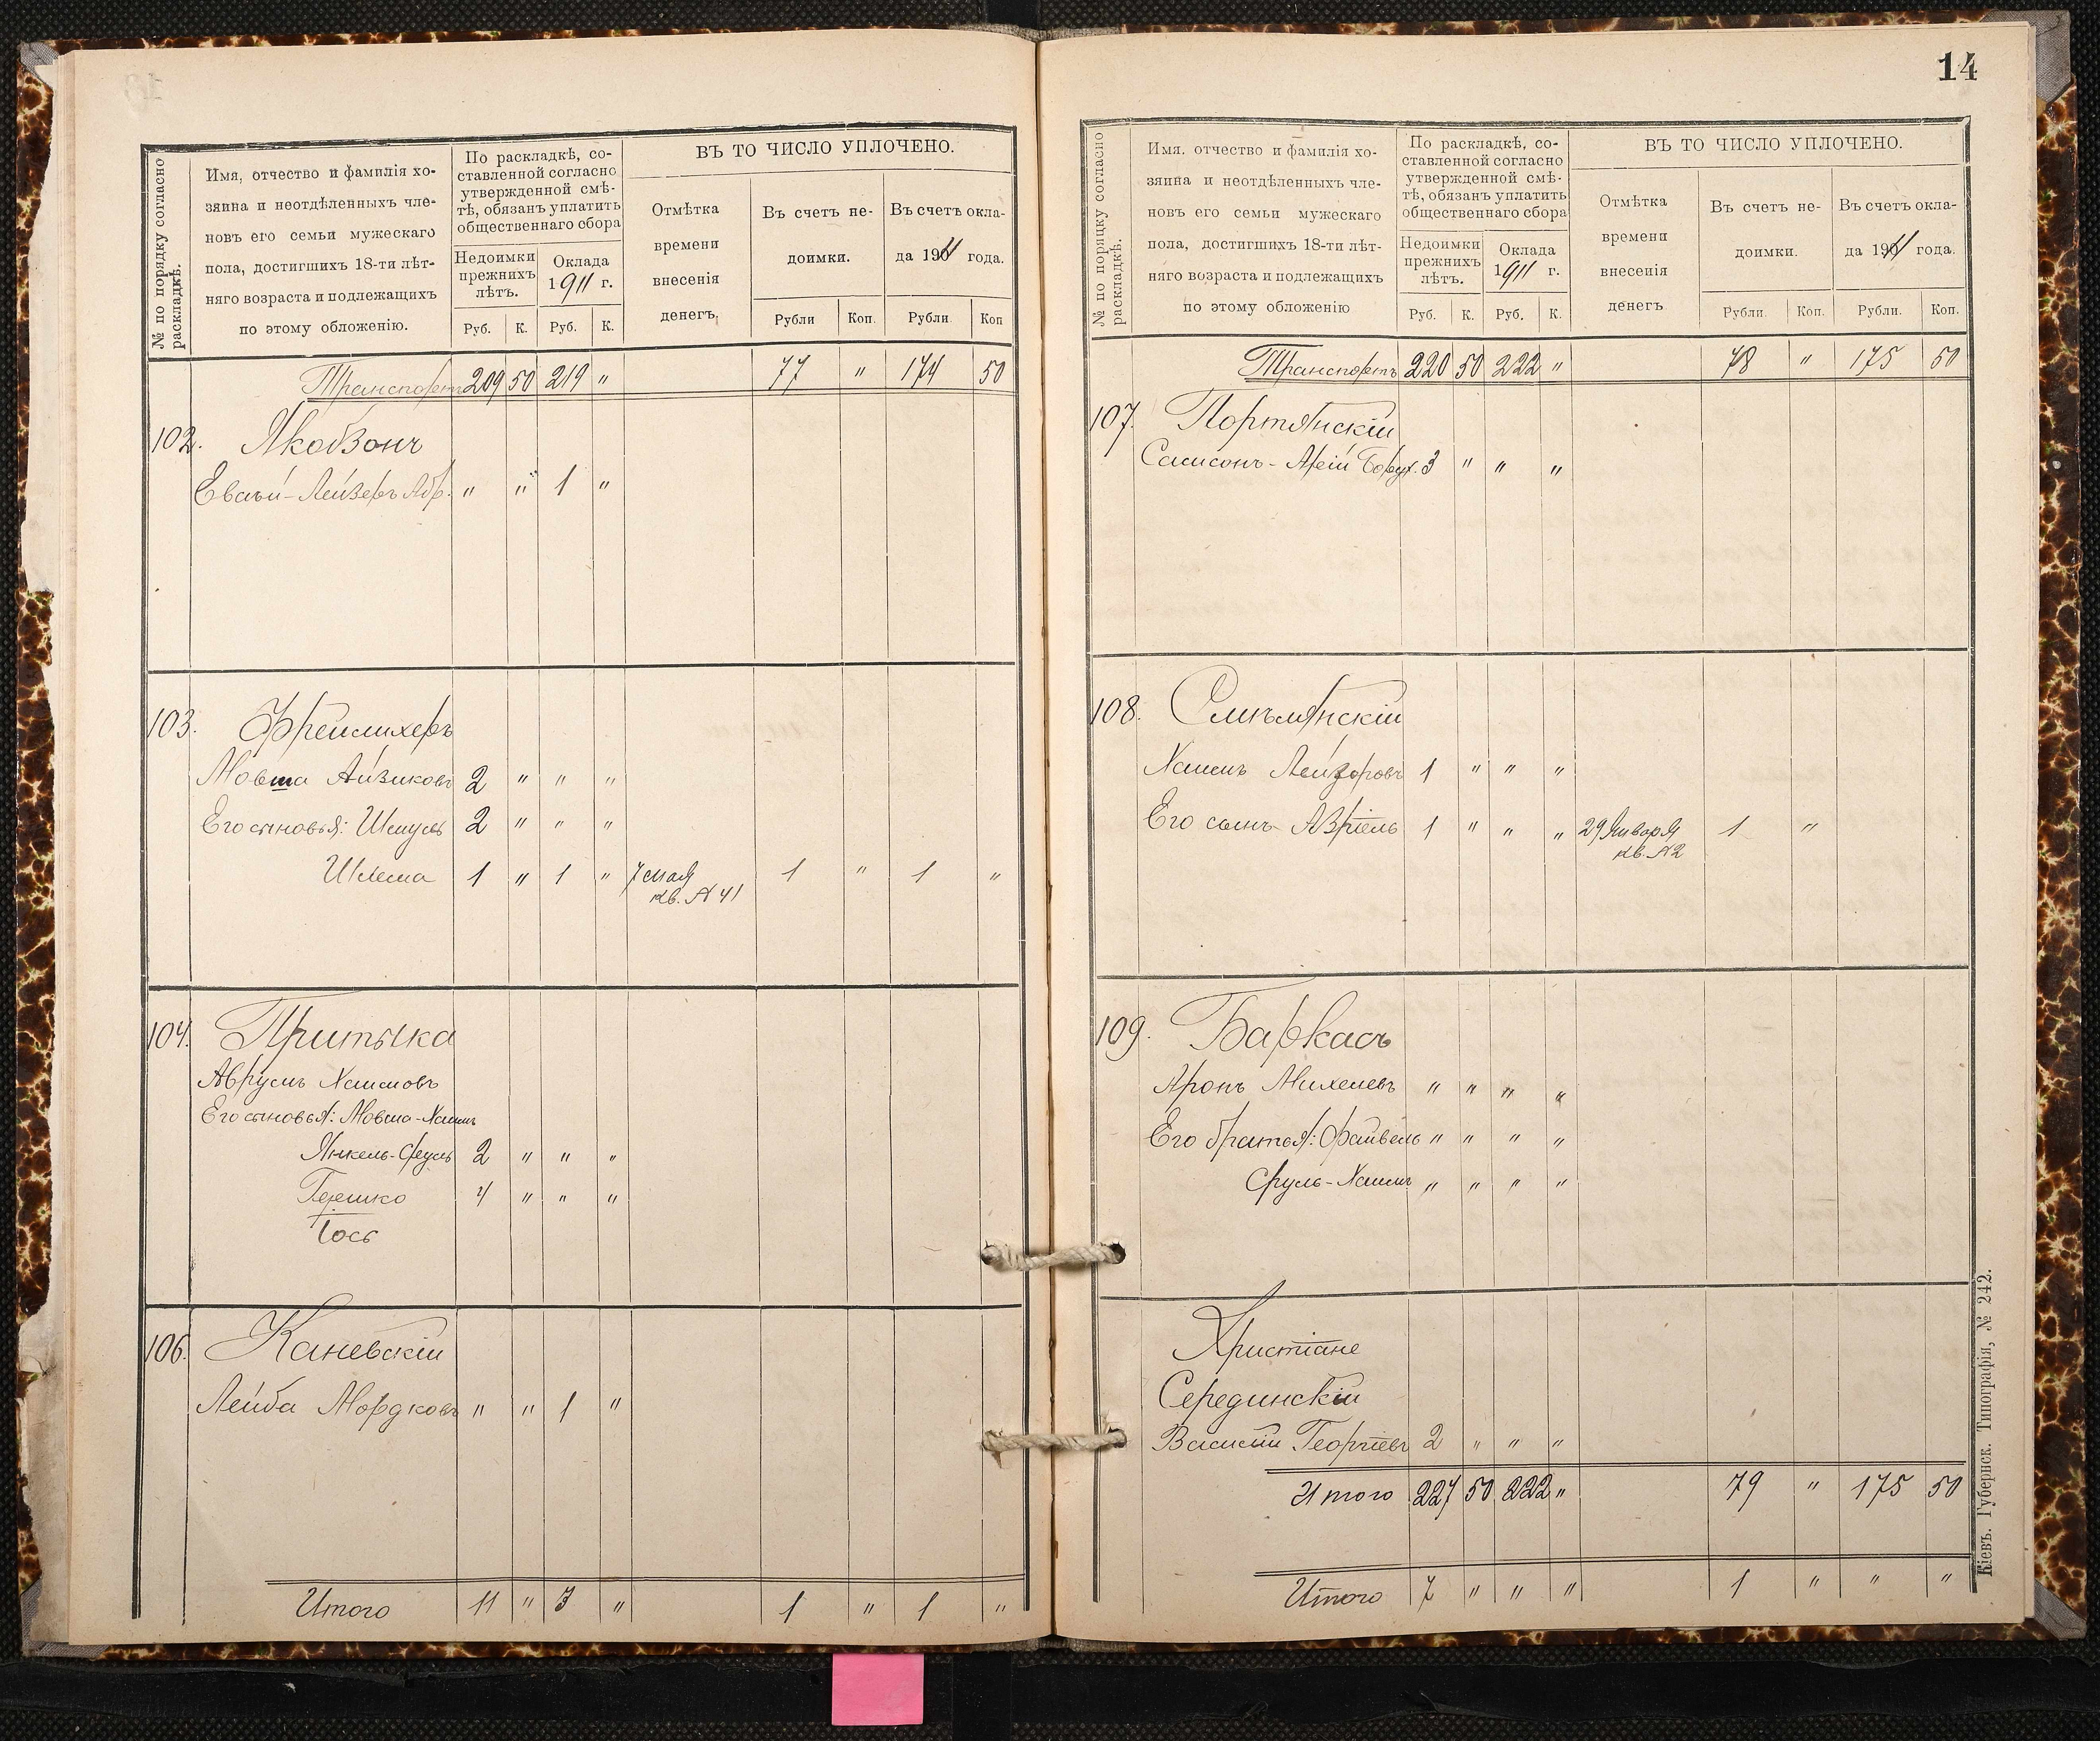 № по порядку согласно раскладкѣ.
Имя, отчество и фамилія хо-
зяина и неотдѣленныхъ чле-
новъ его семьи мужескаго
пола, достигшихъ 18-ти лѣт-
няго возраста и подлежащихъ
по этому обложенію.
По раскладкѣ, со-
ставленной согласно
утвержденной смѣ-
тѣ, обязанъ уплатить
общественнаго сбора
Недоимки прежнихъ лѣтъ.
Оклада 1911 г.
Руб. К. Руб. К.
ВЪ ТО ЧИСЛО УПЛОЧЕНО.
Отмѣтка времени внесенія денегъ.
Въ счетъ не-доимки.
Въ счетъ окла-да 1911 года.
Рубли Коп. Рубли. Коп
Транспортъ 209 50 219 " 77 " 174 50
102. Якобзонъ
Евсѣй-Лейзеръ Абр. " " 1 "
103. Фрейлихеръ
Мовша Айзиковъ 2 " " "
Его сыновья: Шмуль 2 " " "
Шлема 1 " 1 " 7 мая 1 " 1 "
кв. № 41
104. Притыка
Аврумъ Хаимовъ
Его сыновья: Мовша-Хаимъ
Янкель-Сруль 2 " " "
Гершко 4 " " "
Іось
106. Каневскій
Лейба Мордковъ " " 1 "
Итого 11 " 3 " 1 " 1 "
14
№ по порядку согласно раскладкѣ.
Имя. отчество и фамилія хо-
зяина и неотдѣленныхъ чле-
новъ его семьи мужескаго
пола, достигшихъ 18-ти лѣт-
няго возраста и подлежащихъ
по этому обложенію
По раскладкѣ, со-
ставленной согласно
утвержденной смѣ-
тѣ, обязанъ уплатить
общественнаго сбора
Недоимки прежнихъ лѣтъ.
Оклада 1911 г.
Руб. К. Руб. К.
ВЪ ТО ЧИСЛО УПЛОЧЕНО.
Отмѣтка времени внесенія денегъ
Въ счетъ не-доимки.
Въ счетъ окла-да 1911 года.
Рубли. Коп. Рубли. Коп.
Транспортъ 220 50 222 " 78 " 175 50
107. Портянскій
Самсонъ-Арій Борух. 3 " " "
108. Смѣлянскій
Хаимъ Лейзоровъ 1 " " "
Его сынъ Азріель 1 " " " 29 Января 1 "
кв. № 2
109. Баркасъ
Аронъ Михелевъ " " " "
Его братья: Файвель " " " "
Сруль-Хаимъ " " " "
Христіане
Серединскій
Василій Георгіевъ 2 " " "
Итого 227 50 222 " 79 " 175 50
Итого 7 " " " 1 " " "
Кіевъ. Губернск. Типографія, № 242.